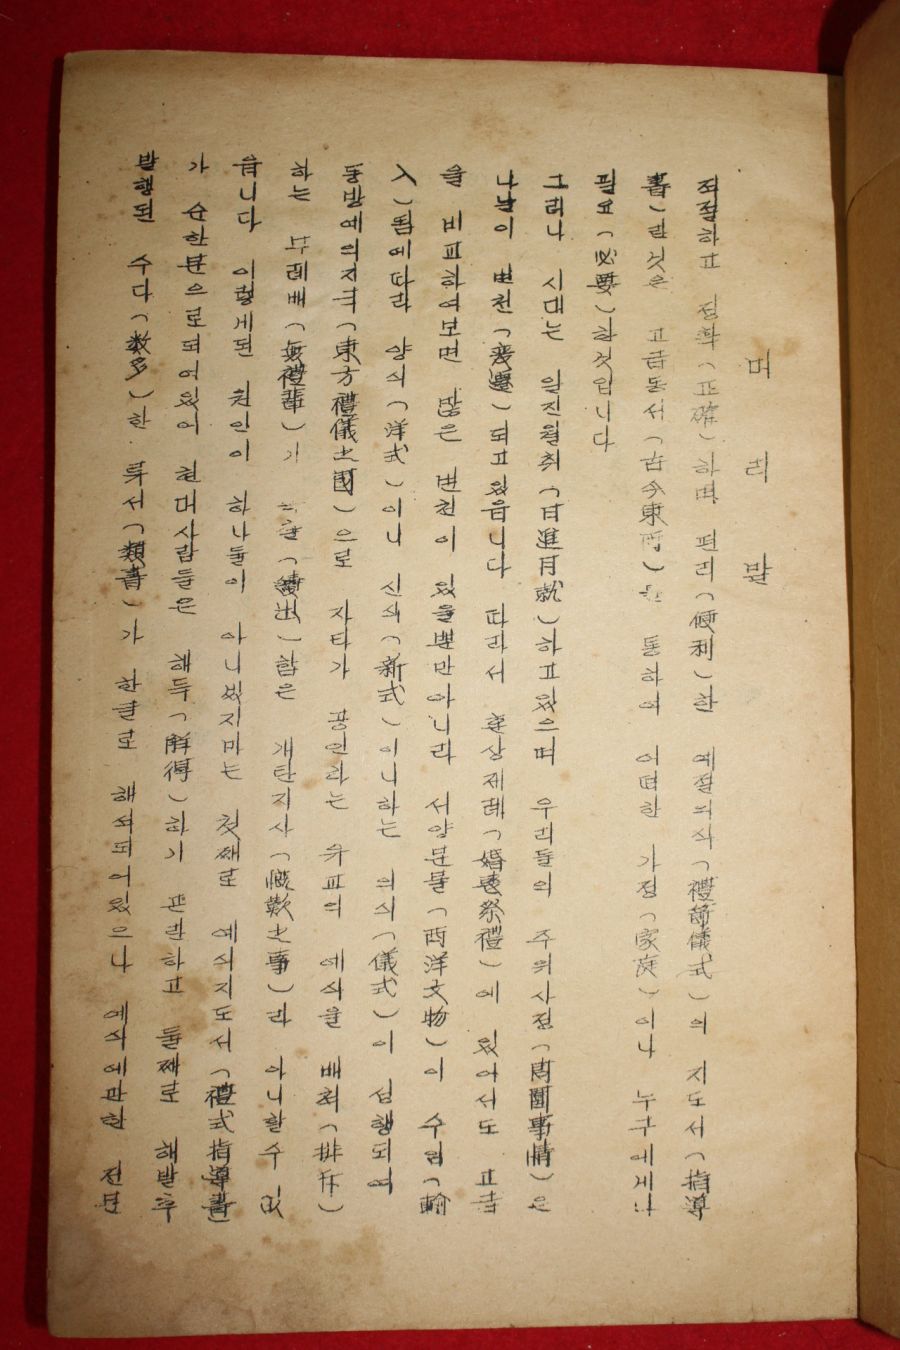 머리말
적절하고 정확(正確)하며 편리(便利)한 예절의식(禮節儀式)의 지도서(指導
書)란것은 고금동서(古今東西)를 통하여 어떠한 가정(家庭)이나 누구에게나
필요(必要)한것입니다
그러나 시대는 일진월취(日進月就)하고있으며 우리들의 주위사정(周圍事情)은
나날이 변천(変遷)되고있읍니다 따라서 혼상제례(婚喪祭禮)에 있어서도 고금
을 비교하여보면 많은 변천이 있을뿐만아니라 서양문물(西洋文物)이 수입(輸
入)됨에따라 양식(洋式)이니 신식(新式)이니하는 의식(儀式)이 성행되여
동방예의지국(東方禮儀之國)으로 자타가 공인라는 유교의 예식을 배척(排斥)
하는 무례배(無禮輩)가 속출(續出)함은 개탄지사(慨歎之事)라 아니할수 없
읍니다 이렇게된 원인이 하나둘이 아니겠지마는 첫째로 예식지도서(禮式指導書)
가 순한문으로되여있어 현대사람들은 해득(解得)하기 곤란하고 둘째로 해방후
발행된 수다(数多)한 류서(類書)가 한글로 해석되어있으나 예식에관한 전문